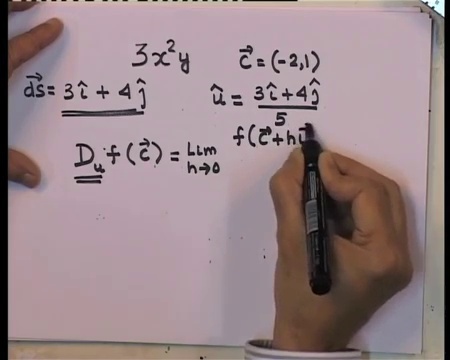 3x²y c⃗ = (-2,1)
d⃗s = 3î + 4ĵ û = 3î+4ĵ / 5
D_u f(c⃗) = Lim h→0 f(c⃗+hu